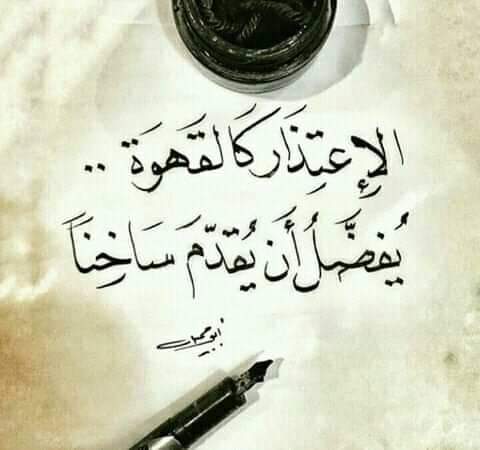 الإِعتِذَار كَالقَهوَة ..
يُفضَّلُ أَن يُقدّمَ سَاخِناً